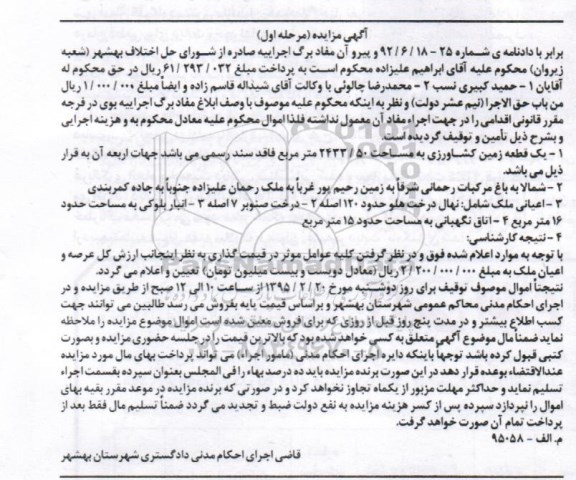 آگهی مزایده (مرحله اول)
برابر با دادنامه ی شماره ۲۵ - ۹۲/۶/۱۸ و پیرو آن مفاد برگ اجراییه صادره از شورای حل اختلاف بهشهر (شعبه
زیروان) محکوم علیه آقای ابراهیم علیزاده محکوم است به پرداخت مبلغ ۶۱/۲۹۳/۰۳۲ ریال در حق محکوم له
آقایان ۱ - حمید کبیری نسب ۲ - محمدرضا چالوئی با وکالت آقای شیداله قاسم زاده و ایضاً مبلغ ۱/۰۰۰/۰۰۰ ریال
من باب حق الاجرا (نیم عشر دولت) و نظر به اینکه محکوم علیه موصوف با وصف ابلاغ مفاد برگ اجراییه بوی در فرجه
مقرر قانونی اقدامی را در جهت اجراء مفاد آن معمول نداشته فلذا اموال محکوم علیه معادل محکوم به و هزینه اجرایی
و بشرح ذیل تأمین و توقیف گردیده است.
۱ - یک قطعه زمین کشاورزی به مساحت ۲۴۳۳/۵۰ متر مربع فاقد سند رسمی می باشد جهات اربعه آن به قرار
ذیل می باشد.
۲ - شمالا به باغ مرکبات رحمانی شرقاً به زمین رحیم پور غرباً به ملک رحمان علیزاده جنوباً به جاده کمربندی
۳ - اعیانی ملک شامل: نهال درخت هلو حدود ۱۲۰ اصله ۲ - درخت صنوبر ۷ اصله ۳ - انبار بلوکی به مساحت حدود
۱۶ متر مربع ۴ - اتاق نگهبانی به مساحت حدود ۱۵ متر مربع
۴ - نتیجه کارشناسی:
با توجه به موارد اعلام شده فوق و در نظر گرفتن کلیه عوامل موثر در قیمت گذاری به نظر اینجانب ارزش کل عرصه و
اعیان ملک به مبلغ ۲/۲۰۰/۰۰۰/۰۰۰ ریال (معادل دویست و بیست میلیون تومان) تعیین و اعلام می گردد.
نتیجتاً اموال موصوف توقیف برای روز دوشنبه مورخ ۱۳۹۵/۲/۲۰ از ساعت ۱۰ الی ۱۲ صبح از طریق مزایده و در
اجرای احکام مدنی محاکم عمومی شهرستان بهشهر و براساس قیمت پایه بفروش می رسد طالبین می توانند جهت
کسب اطلاع بیشتر و در مدت پنج روز قبل از روزی که برای فروش معین شده است اموال موضوع مزایده را ملاحظه
نماید ضمناً مال موضوع آگهی متعلق به کسی خواهد شد بود که بالاترین قیمت را در جلسه حضوری مزایده و بصورت
کتبی قبول کرده باشد توجهاً باینکه دایره اجرای احکام مدنی (مامور اجراء) می تواند پرداخت بهای مال مورد مزایده
عندالاقتضاء بوعده قرار دهد در این صورت برنده مزایده باید ده درصد بهاء را فی المجلس بعنوان سپرده بقسمت اجراء
تسلیم نماید و حداکثر مهلت مزبور از یکماه تجاوز نخواهد کرد و در صورتی که برنده مزایده در موعد مقرر بقیه بهای
اموال را نپردازد سپرده پس از کسر هزینه مزایده به نفع دولت ضبط و تجدید می گردد ضمناً تسلیم مال فقط بعد از
پرداخت تمام آن صورت خواهد گرفت.
م.الف - ۹۵۰۵۸
قاضی اجرای احکام مدنی دادگستری شهرستان بهشهر